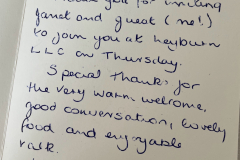 you for inviting
Janet and guest (me!)
to join you at Heyburn
LLC on Thursday.
Special thanks for
the very warm welcome,
good conversation, lovely
food and enjoyable